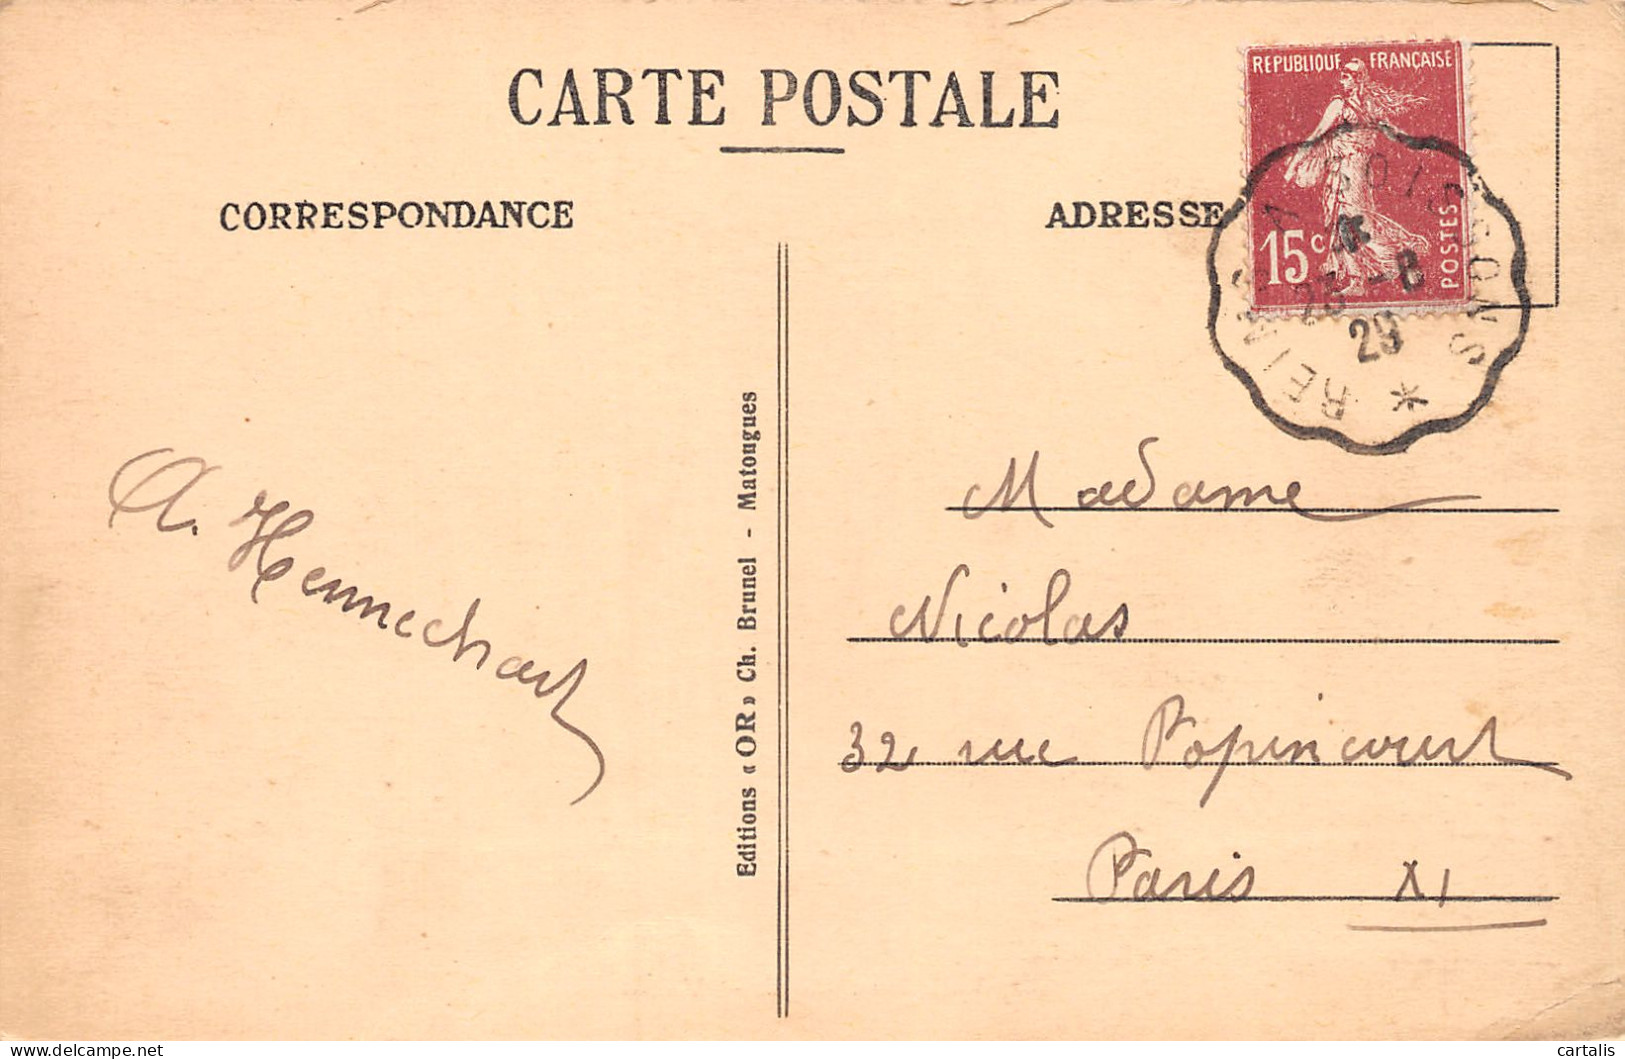 CARTE POSTALE
CORRESPONDANCE
ADRESSE
REPUBLIQUE FRANÇAISE
15c
POSTES
REIMS A SOISSONS *
23 -8
29
A. Hennechart
Editions « OR » Ch. Brunel - Matougues
Madame
Nicolas
32 rue Popincourt
Paris XI
delcampe.net
cartalis